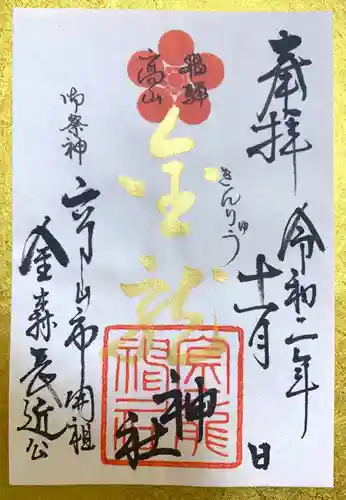 奉拝
令和二年
十一月 日
飛騨
高山
きんりゅう
金龍
神社
御祭神
高山市開祖
金森長近公